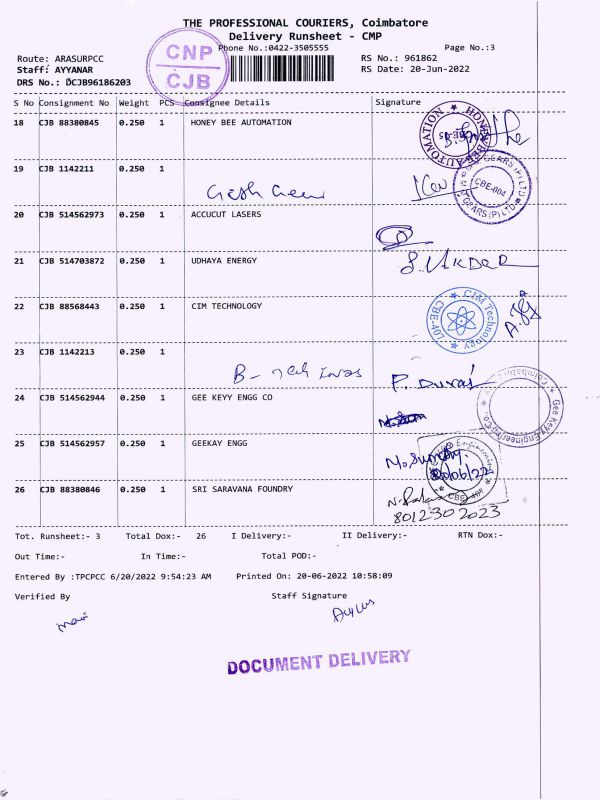 THE PROFESSIONAL COURIERS, Coimbatore
Delivery Runsheet - CMP
Phone No.:0422-3505555 Page No.:3
Route: ARASURPCC RS No.: 961862
Staff: AYYANAR RS Date: 20-Jun-2022
DRS No.: DCJB96186203
CNP
CJB
S No Consignment No Weight PCS Consignee Details Signature
18 CJB 88380845 0.250 1 HONEY BEE AUTOMATION
HONEY BEE AUTOMATION
19 CJB 1142211 0.250 1
GEARS (P) LTD
CBE-004
20 CJB 514562973 0.250 1 ACCUCUT LASERS
21 CJB 514703872 0.250 1 UDHAYA ENERGY
22 CJB 88568443 0.250 1 CIM TECHNOLOGY
CIM Technology
CBE-407
23 CJB 1142213 0.250 1
P. Durai
24 CJB 514562944 0.250 1 GEE KEYY ENGG CO
Gee Keyy Engineering Co. Coimbatore
25 CJB 514562957 0.250 1 GEEKAY ENGG
20/06/22
26 CJB 88380846 0.250 1 SRI SARAVANA FOUNDRY
8012302023
Tot. Runsheet:- 3 Total Dox:- 26 I Delivery:- II Delivery:- RTN Dox:-
Out Time:- In Time:- Total POD:-
Entered By :TPCPCC 6/20/2022 9:54:23 AM Printed On: 20-06-2022 10:58:09
Verified By Staff Signature
DOCUMENT DELIVERY